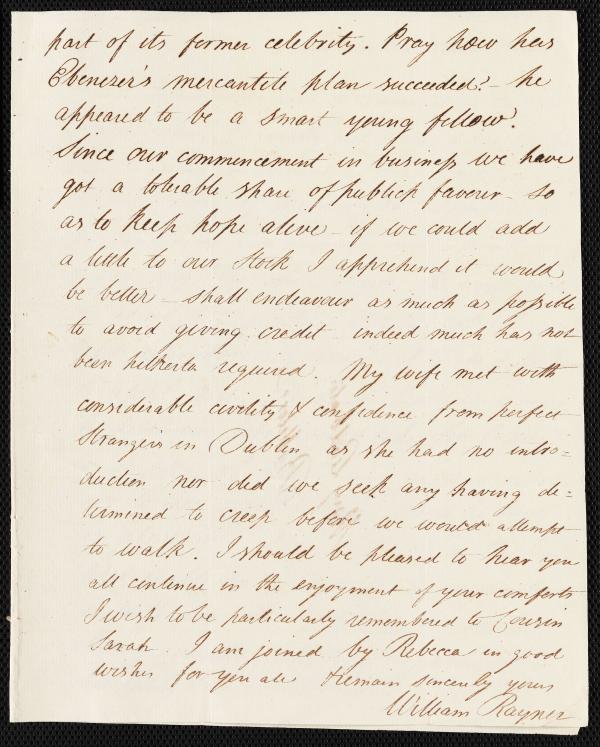 part of its former celebrity. Pray how has
Ebenezer's mercantile plan succeeded? - he
appeared to be a smart young fellow.
Since our commencement in business we have
got a tolerable share of publick favour - so
as to keep hope alive - if we could add
a little to our stock I apprehend it would
be better - shall endeavour as much as possible
to avoid giving credit - indeed much has not
been hitherto required. My wife met with
considerable civility & confidence from perfect
strangers in Dublin as she had no intro=
duction nor did we seek any having de=
termined to creep before we would attempt
to walk. I should be pleased to hear you
all continue in the enjoyment of your comforts
I wish to be particularly remembered to Cousin
Sarah. I am joined by Rebecca in good
wishes for you all & remain sincerely yours
William Rayner